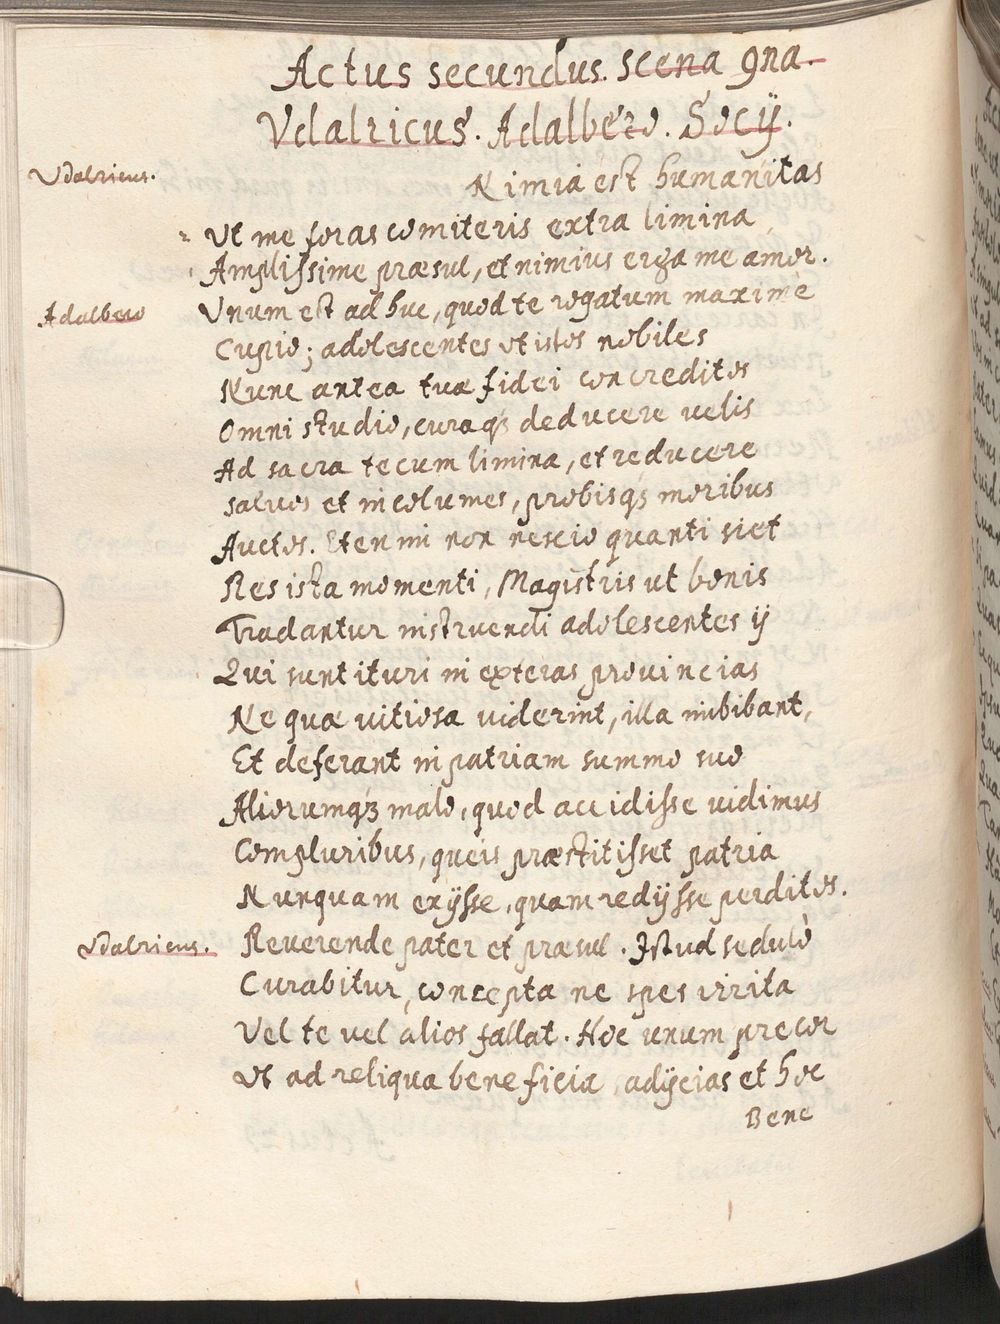 Actus secundus. Scena 9na.
Vdalricus. Adalbero. Socÿ.
Vdalricus. Nimia est humanitas
Vt me foras comiteris extra limina
Amplissime præsul, et nimius erga me amor.
Adalbero Vnum est ad huc, quod te rogatum maximè
Cupio; adolescentes vt istos nobiles
Nunc antea tuæ fidei concreditos
Omni studio, curaq3 deducere velis
Ad sacra tecum limina, et reducere
Saluos et incolumes, probisq3 moribus
Auctos. Etenim non nescio quanti siet
Res ista momenti, Magistris ut bonis
Tradantur instruendi adolescentes ÿ
Qui sunt ituri in exteras prouincias
Ne quæ uitiosa uiderint, illa imbibant,
Et deferant in patriam summo suo
Aliorumq3 malo, quod accidisse uidimus
Compluribus, queis præstitisset patria
Nunquam exÿsse, quam redÿsse perditos.
Vdalricus. Reuerende pater et præsul. Istud sedulò
Curabitur, concepta ne spes irrita
Vel te vel alios fallat. Hoc unum precor
Vt ad reliqua beneficia adÿcias et hoc
Bene